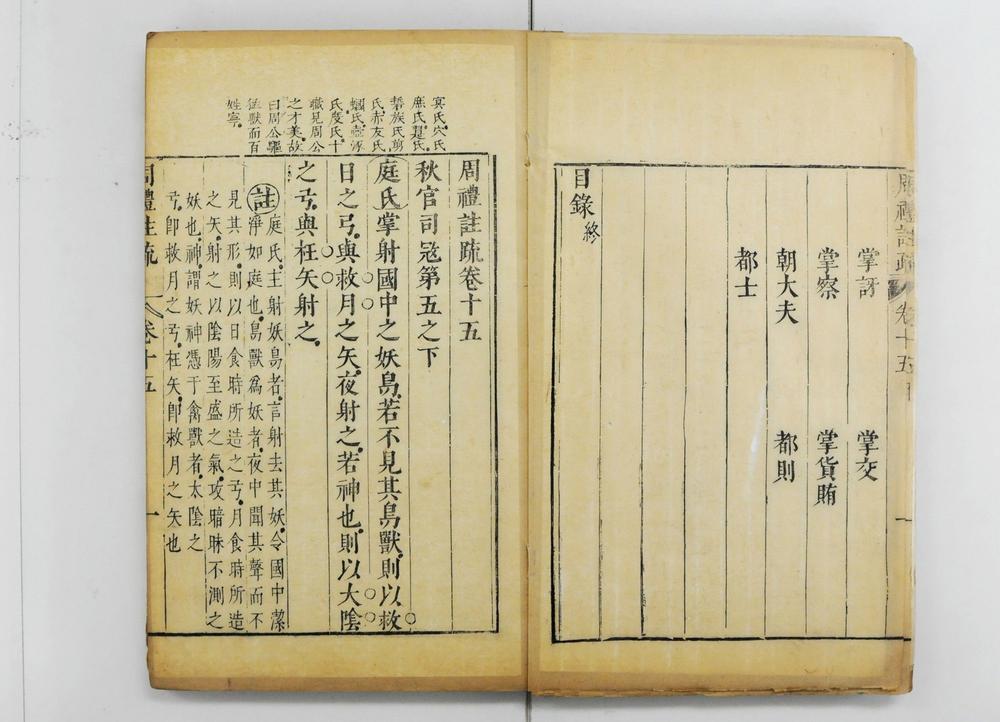 周禮註疏 卷十五目 一
掌訝 掌交
掌察 掌貨賄
朝大夫 都則
都士
目錄終
氏穴氏
庶氏翨氏
族氏剪
氏赤友氏
蟈氏壺涿
氏庭氏十
職見周公
之才美故
曰周公驅
猛獸而百
姓寧
周禮註疏卷十五
秋官司寇第五之下
庭氏掌射國中之妖鳥若不見其鳥獸則以救
日之弓與救月之矢夜射之若神也則以大陰
之弓與枉矢射之
註庭氏主射妖鳥者言射去其妖令國中潔
淨如庭也鳥獸爲妖者夜中聞其聲而不
見其形則以日食時所造之弓月食時所造
之矢射之以陰陽至盛之氣攻暗昧不測之
妖也神謂妖神憑于禽獸者太陰之
弓卽救月之弓枉矢卽救月之矢也
周禮註疏 卷十五 一